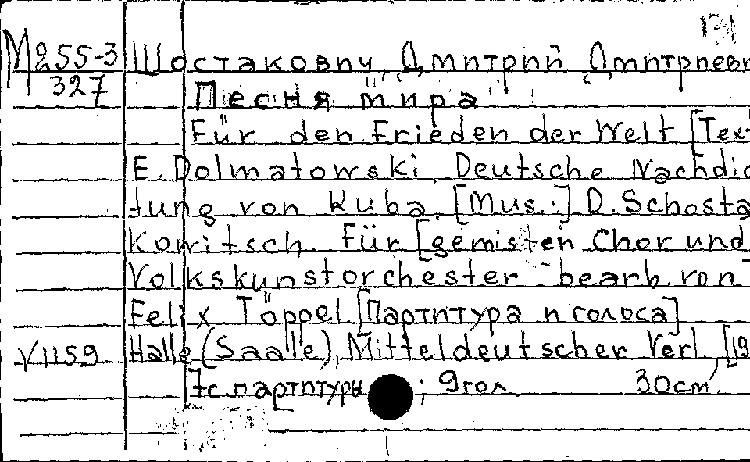 131
М255-3 Шостакович, Дмитрий Дмитриеви
327 "Песня мира"
Für den Frieden der Welt [Tex
E. Dolmatowski. Deutsche Nachdic
tung von Kuba. [Mus.:] D. Schosta
kowitsch. Für [gemisten Chor und
Volkskunstorchester bearb. von
Felix Töppel [Партитура и голоса]
V1159 Halle (Saale), Mitteldeutscher Verl., [19
7с. партитуры; 9гол. 30см